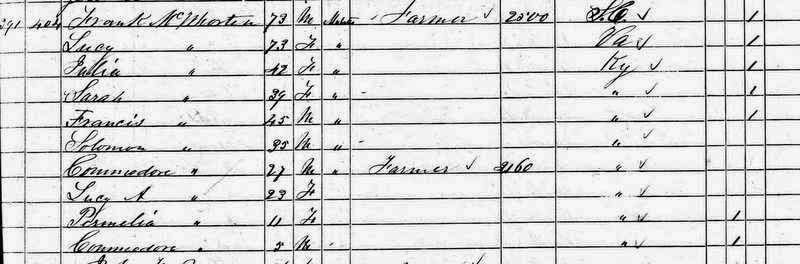 291 404 Frank McWhorter 73 M Mulatto - Farmer ✓ 2500 S.C. ✓ 1
Lucy " 73 F " Va ✓ 1
Julia " 42 F " Ky ✓ 1
Sarah " 39 F " - " ✓ 1
Francis " 45 M " " ✓ 1
Solomon " 35 M " - " ✓
Commodore " 27 M " Farmer ✓ 2160 " ✓
Lucy A " 23 F " ✓
Permelia " 11 F " ✓ 1
Commodore " 5 M - " ✓ 1